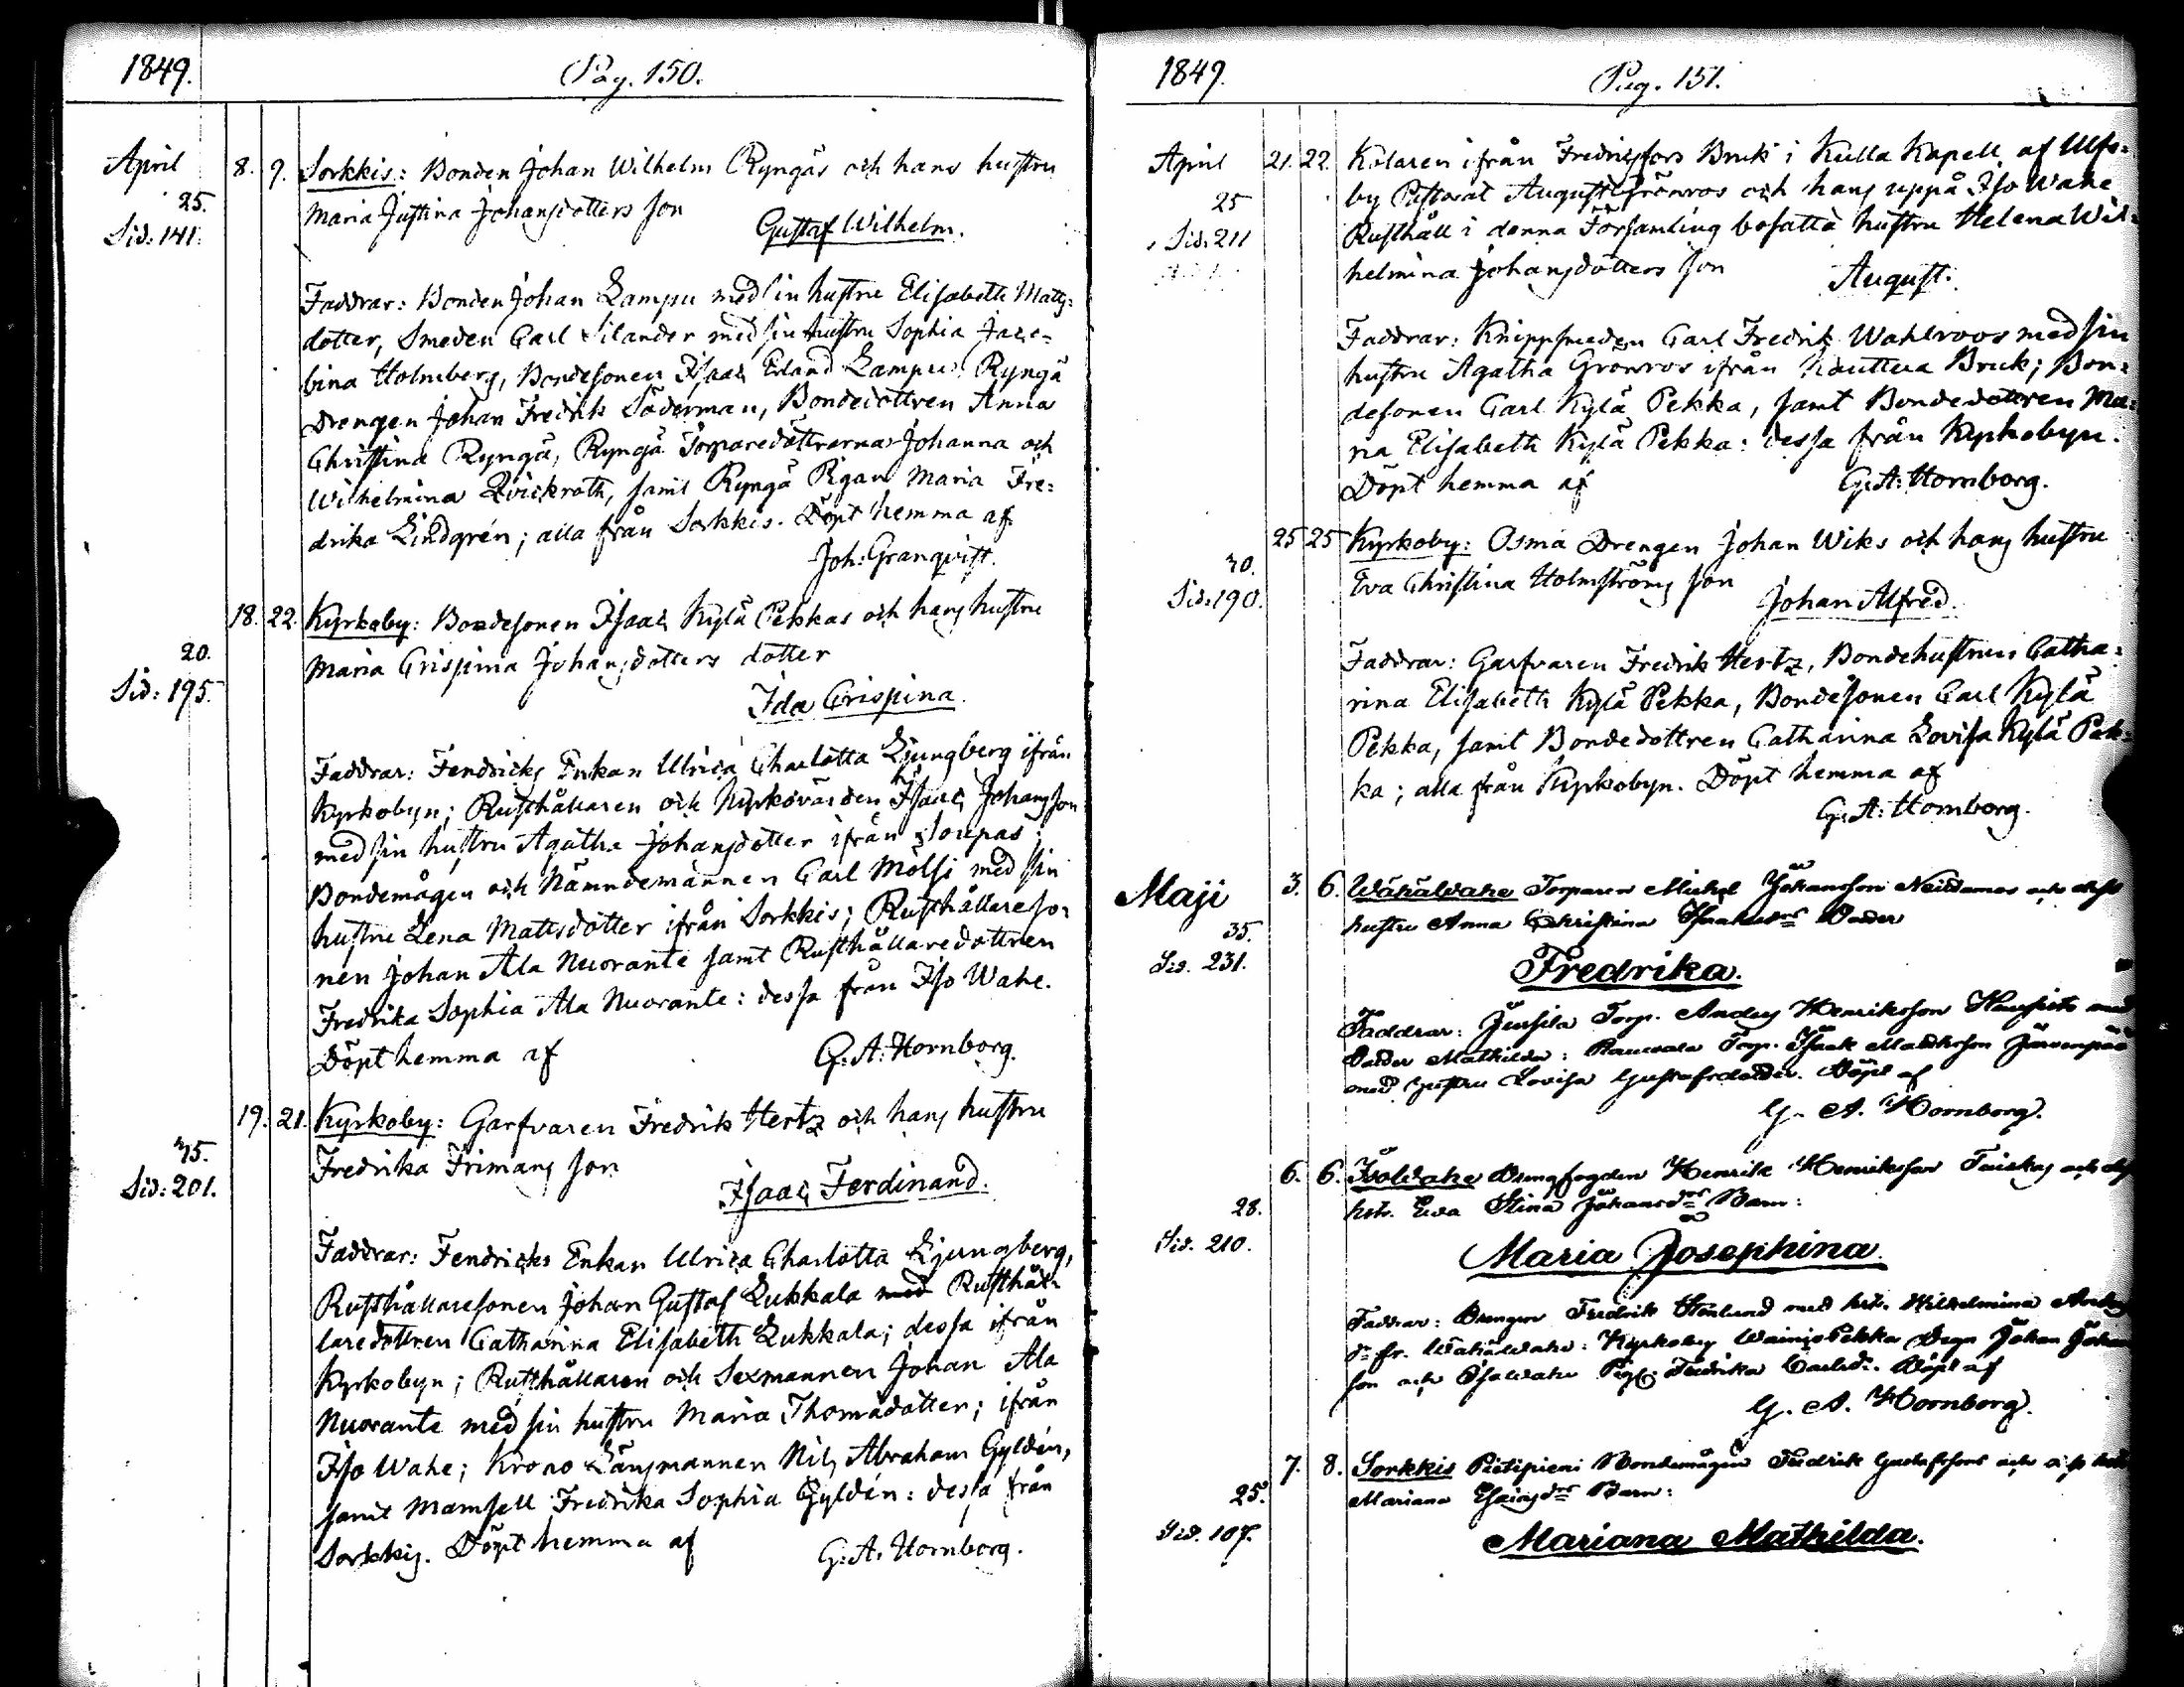 1849.
Pag. 150.
April
25.
Sid: 141.
8. 9. Sorkkis: Bonden Johan Wilhelm Ryngäs och hans hustru
Maria Justina Johansdotters son
Gustaf Wilhelm.
Faddrar: Bonden Johan Lampu med sin hustru Elisabeth Matts-
dotter, Smeden Carl Silander med sin hustru Sophia Jaco-
bina Holmberg, Bondesonen Isaac Eland Lampu, Ryngä
Drengen Johan Fredrik Söderman, Bondedottren Anna
Christina Ryngä, Ryngä Torparedöttrarna Johanna och
Wilhelmina Qvickroth, samt Ryngä Pigan Maria Fre-
drika Lindgrén; alla från Sorkkis. Döpt hemma af
Joh: Granqvist.
20.
Sid: 195.
18. 22. Kyrkoby: Bondesonen Isaac Kylä Pekkas och hans hustru
Maria Crispina Johansdotters dotter
Ida Crispina.
Faddrar: Fendricks Enkan Ulrica Charlotta Ljungberg ifrån
Kyrkobyn; Rusthållaren och Kyrkovärden Isaac Johansson
med sin hustru Agatha Johansdotter ifrån
Bondemågen och Nämndemannen Carl Mölsi med sin
hustru Lena Mattsdotter ifrån Sorkkis; Rusthållareso-
nen Johan Ala Nuorante samt Rusthållaredottren
Fredrika Sophia Ala Nuorante: dessa från Iso Wahe.
Döpt hemma af
G: A: Hornborg.
35.
Sid: 201.
19. 21. Kyrkoby: Garfvaren Fredrik Hertz och hans hustru
Fredrika Frimans son
Isaac Ferdinand.
Faddrar: Fendricks Enkan Ulrica Charlotta Ljungberg,
Rusthållaresonen Johan Gustaf Lukkala med Rusthål-
laredottren Catharina Elisabeth Lukkala; dessa ifrån
Kyrkobyn; Rusthållaren och Sexmannen Johan Ala
Nuorante med sin hustru Maria Thomådotter; ifrån
Iso Wahe; Krono Länsmannen Nils Abraham Gyldén,
samt Mamsell Fredrika Sophia Gyldén: dessa från
Sorkkis. Döpt hemma af
G: A. Hornborg.
1849.
Pag. 151.
April
25
Sid: 211
21. 22. Kolaren ifrån Fredriksfors Bruk i Kulla Kapell af Ulfs-
by Pastorat August Grönroos och hans uppå Iso Wahe
Rusthåll i denna Församling bosatta hustru Helena Wil-
helmina Johansdotters son
August.
Faddrar: Knippsmeden Carl Fredrik Wahlroos med sin
hustru Agatha Grönroos ifrån Kauttua Bruk; Bon-
desonen Carl Kylä Pekka, samt Bondedottren Ma-
ria Elisabeth Kylä Pekka: dessa från Kyrkobyn.
Döpt hemma af
G: A: Hornborg.
30.
Sid: 190.
25 25 Kyrkoby: Osma Drengen Johan Wiks och hans hustru
Eva Christina Holmströms son
Johan Alfred.
Faddrar: Garfvaren Fredrik Hertz, Bondehustrun Catha-
rina Elisabeth Kylä Pekka, Bondesonen Carl Kylä
Pekka, samt Bondedottren Catharina Lovisa Kylä Pek-
ka; alla från Kyrkobyn. Döpt hemma af
G: A: Hornborg.
Maji
35.
Sid. 231.
3. 6. Wähäwahe Torparen Michel Johansson och
hustru Anna Christina Dotter
Fredrika.
Faddrar: Torp. Anders Henriksson med
Dotter Mathilda: Torp. Isack Järvenpää
med hustru Lovisa Gustafsdotter. Döpt af
G. A. Hornborg.
28.
Sid. 210.
6. 6. Isowahe Drengfogden Henrik Henriksson och
hstr. Ewa Stina Johansdrs Barn:
Maria Josephina.
Faddrar: Drengen Fredrik Stenlund med hstr. Wilhelmina Anders
dr fr. Wähäwahe: Kyrkoby Wainio Pekka Dregn Johan Johan
son och Isowahe Pig. Fredrika Carlsdr. Döpt af
G. A. Hornborg.
25.
Sid. 107.
7. 8. Sorkkis Bondemågen Fredrik Gustafssons och
Mariana Barn:
Mariana Mathilda.